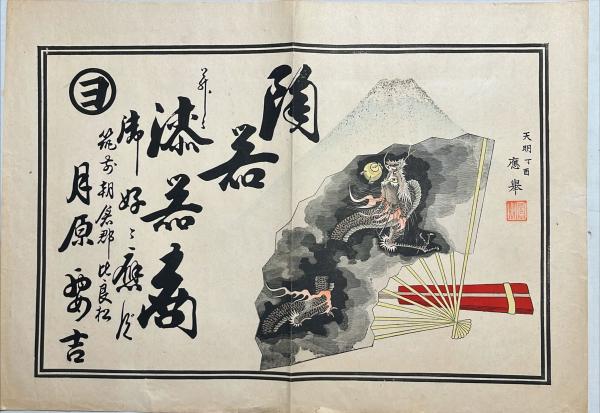 天明丁酉
應舉
陶器
并ニ
漆器商
御好ニ應ズ
筑前朝倉郡比良松
月原要吉
ヨ